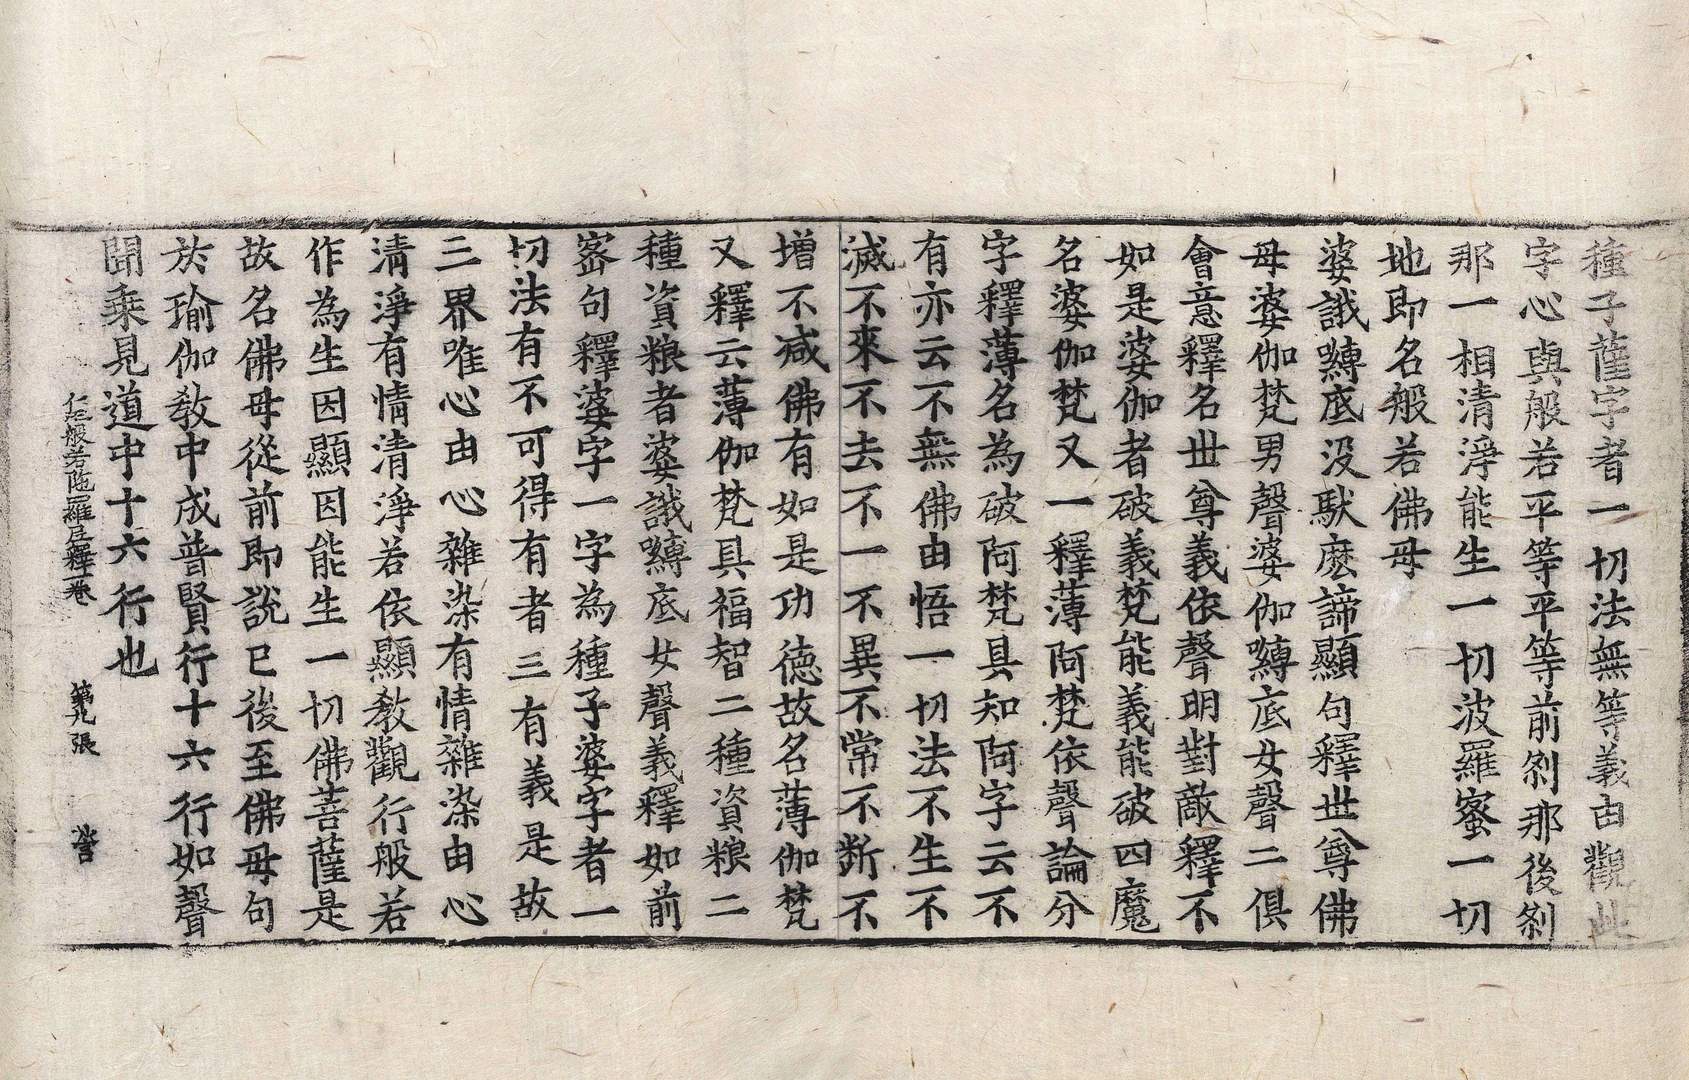 種子薩字者一切法無等義由觀此
字心與般若平等平等前刹那後刹
那一相清淨能生一切波羅蜜一切
地即名般若佛母
婆誐嚩底没馱麽諦顯句釋世尊佛
母婆伽梵男聲婆伽嚩底女聲二俱
會意釋名世尊義依聲明對敵釋不
如是婆伽者破義梵能義能破四魔
名婆伽梵又一釋薄阿梵依聲論分
字釋薄名為破阿梵具知阿字云不
有亦云不無佛由悟一切法不生不
滅不來不去不一不異不常不断不
增不减佛有如是功德故名薄伽梵
又釋云薄伽梵具福智二種資粮二
種資粮者婆誐嚩底女聲義釋如前
宻句釋婆字一字為種子婆字者一
切法有不可得有者三有義是故
三界唯心由心雜染有情雜染由心
清淨有情清淨若依顯教觀行般若
作為生因顯因能生一切佛菩薩是
故名佛母從前即說已後至佛母句
於瑜伽教中成普賢行十六行如聲
聞乘見道中十六行也
仁王般若陁羅尼釋一卷 第九張